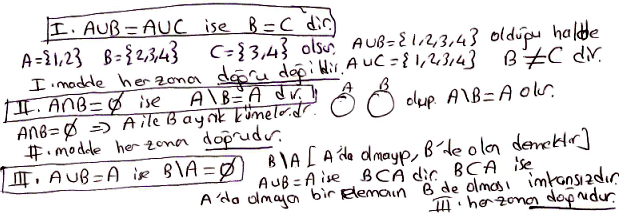 I. AUB = AUC ise B = C dir.
A={1,2} B={2,3,4} C={3,4} olsun. AUB={1,2,3,4} olduğu halde
AUC={1,2,3,4} B≠C dir.
I. madde her zaman doğru değildir.
II. A∩B=∅ ise A\B=A dır.
A B olup. A\B=A olur.
A∩B=∅ => A ile B ayrık kümelerdir.
II. madde her zaman doğrudur.
III. AUB=A ise B\A=∅
B\A [A'da olmayıp, B'de olan demektir]
AUB=A ise B⊂A dir. B⊂A ise
A'da olmayan bir elemanın B'de olması imkansızdır.
III. her zaman doğrudur.